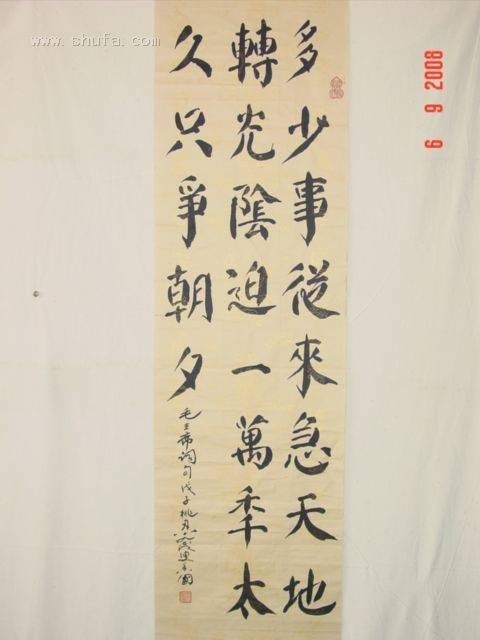 多少事從來急天地
轉光陰迫一萬年太
久只爭朝夕
毛主席词句戊子桃月
www.shufa.com
6 9 2008